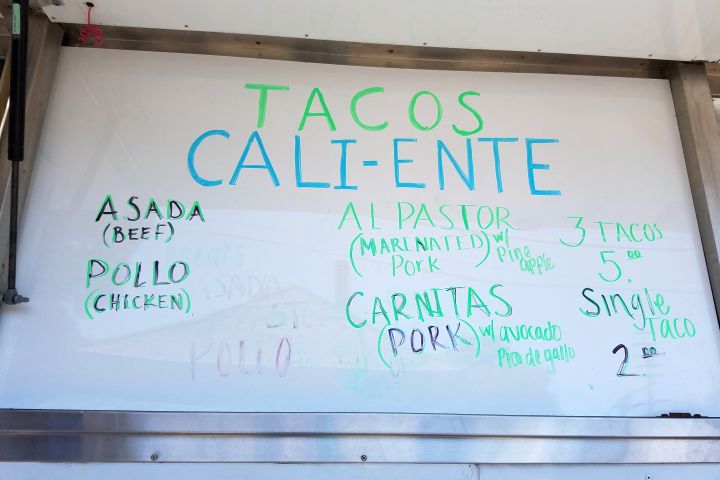 TACOS
CALI-ENTE
ASADA
(BEEF)
POLLO
(CHICKEN)
AL PASTOR
(MARINATED) w/ Pine
Pork apple
CARNITAS
(PORK) w/ avocado
Pico de gallo
3 TACOS
5.00
Single
TACO
2.00
ASADA
POLLO